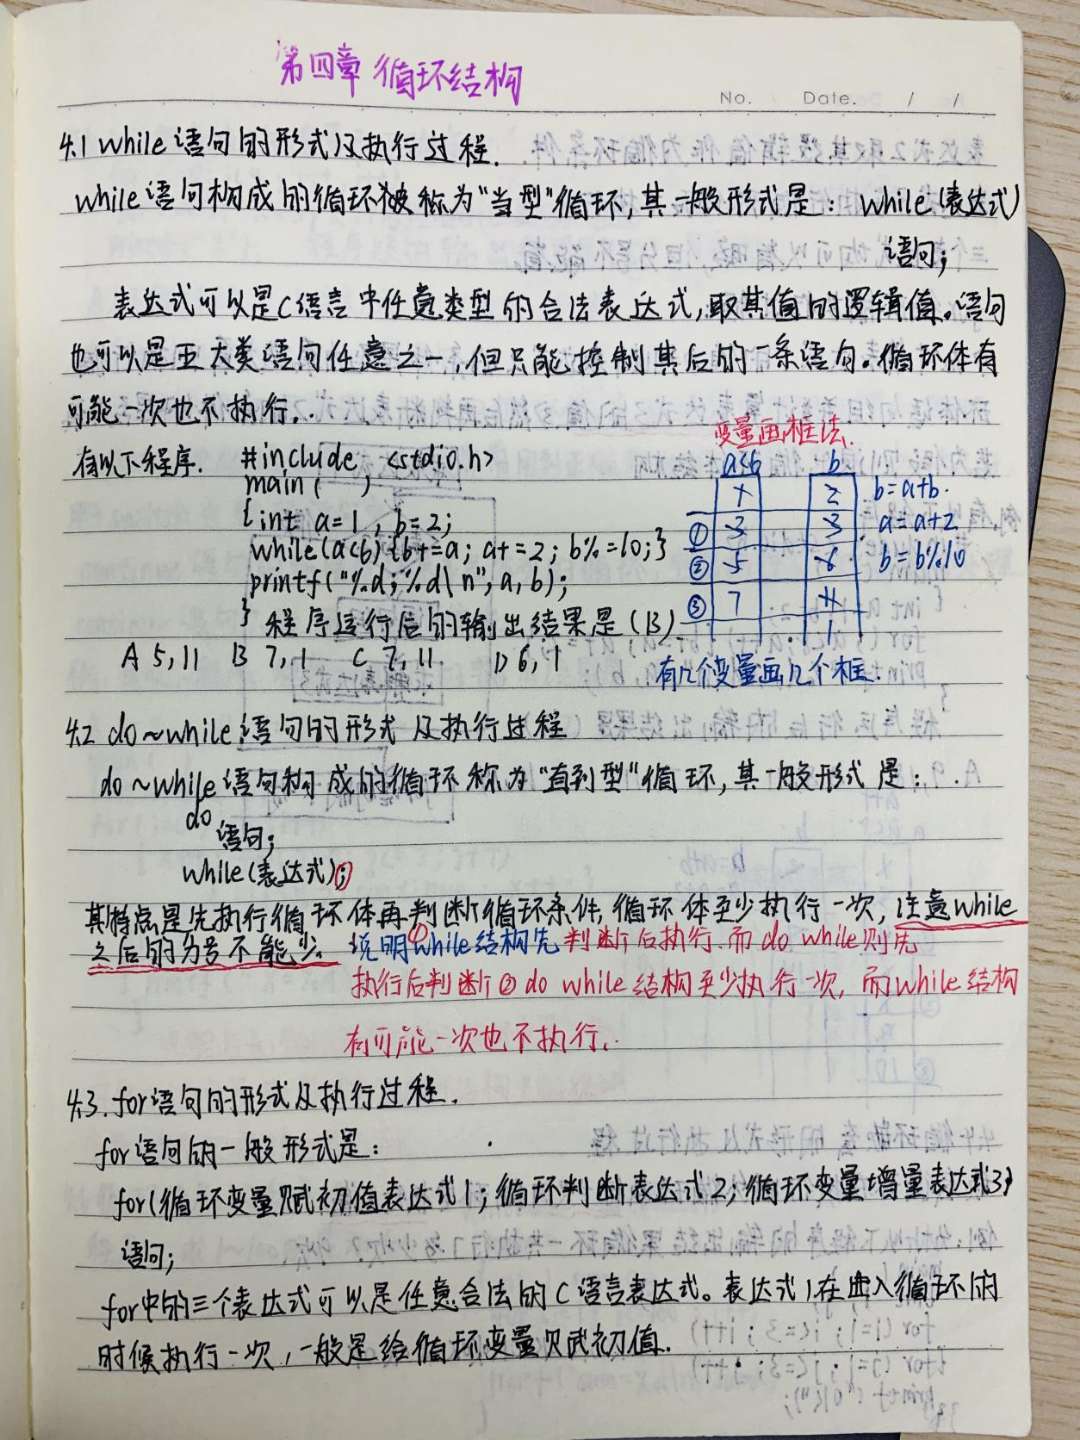 第四章 循环结构
No.  Date.  /  /
4.1 while 语句的形式及执行过程.
while 语句构成的循环被称为"当型"循环,其一般形式是: while(表达式)
语句;
表达式可以是C语言中任意类型的合法表达式,取其值的逻辑值。语句
也可以是五大类语句任意之一,但只能控制其后的一条语句。循环体有
可能一次也不执行.
变量画框法.
有以下程序. #include <stdio.h>
main( )
{int a=1, b=2;
while(a<b){b+=a; a+=2; b%=10;}
printf("%d;%d\n", a, b);
} 程序运行后的输出结果是(B)
A 5,11 B 7,1 C 7,11. D 6,1
a<b b
1 2 b=a+b.
① 3 3 a=a+2
② 5 6 b=b%10
③ 7 11
1
有几个变量画几个框.
4.2 do~while 语句的形式及执行过程
do~while 语句构成的循环称为"直到型"循环,其一般形式是:
do
语句;
while(表达式);
其特点是先执行循环体再判断循环条件,循环体至少执行一次,注意while
之后的分号不能少. 说明①while结构先判断后执行.而do while则先
执行后判断②do while结构至少执行一次,而while结构
有可能一次也不执行.
4.3. for语句的形式及执行过程.
for语句的一般形式是:
for(循环变量赋初值表达式1;循环判断表达式2;循环变量增量表达式3)
语句;
for中的三个表达式可以是任意合法的C语言表达式。表达式1在进入循环的
时候执行一次,一般是给循环变量赋初值.